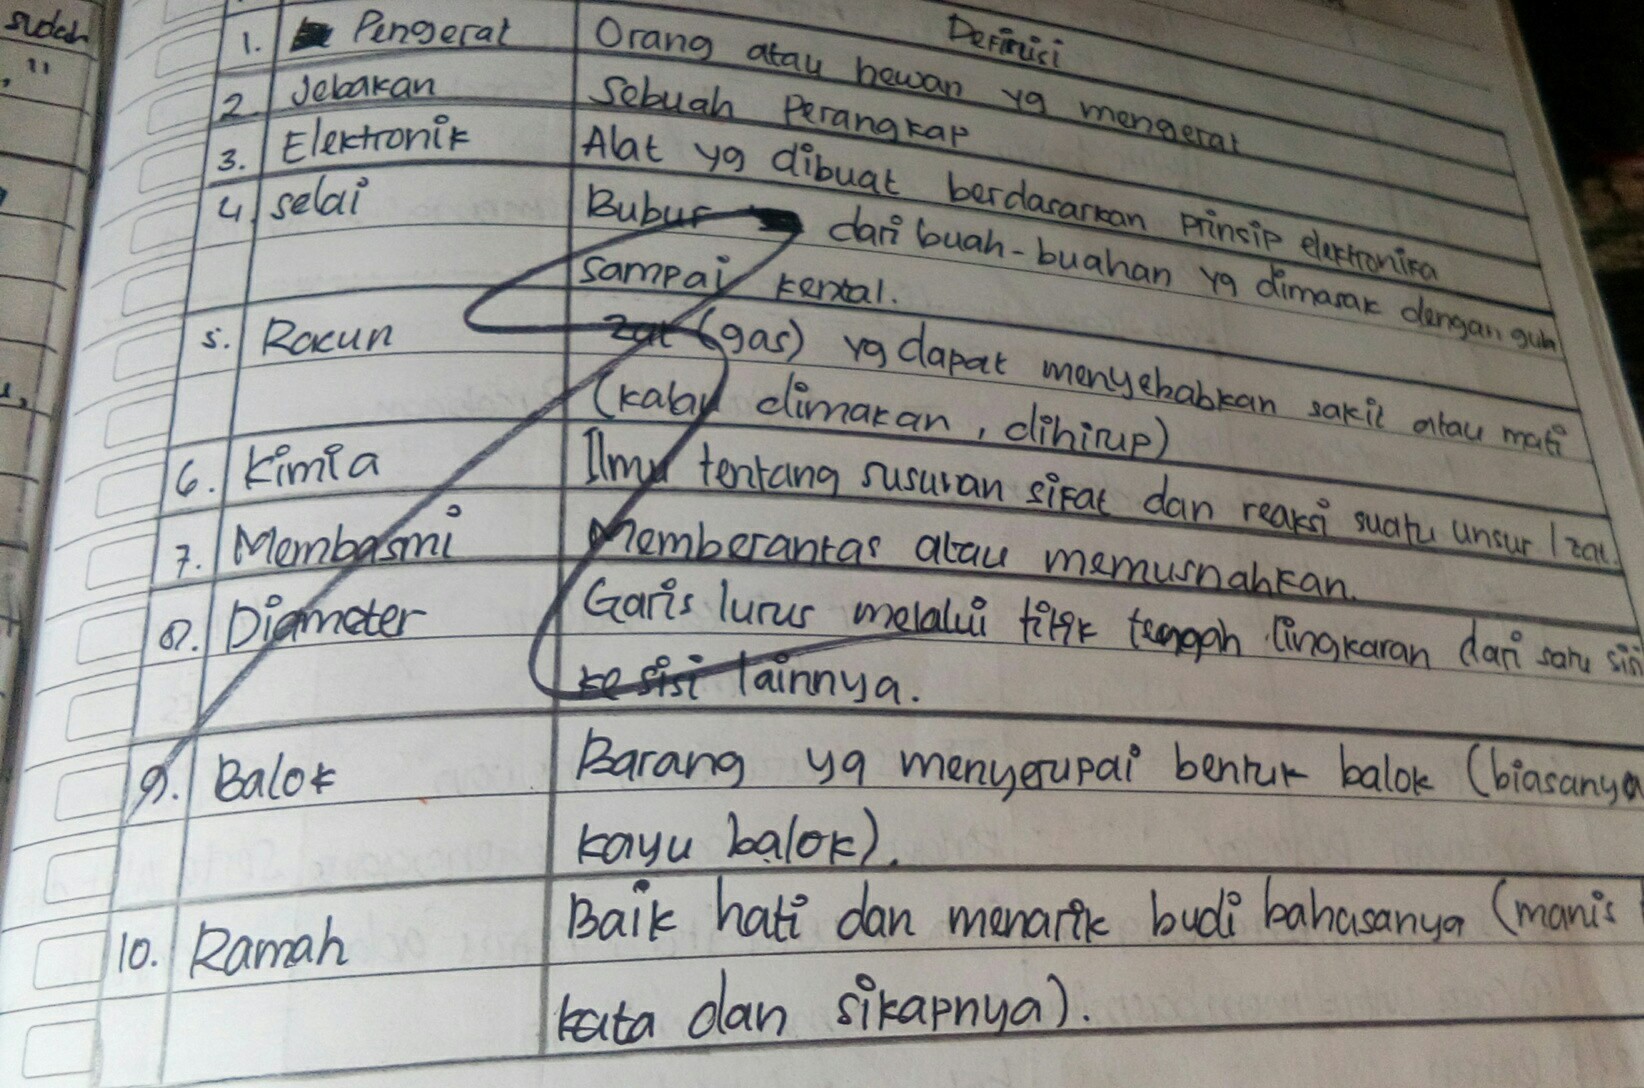 sudah
, "
Definisi
1. Pengerat Orang atau hewan yg mengerat
2. Jebakan Sebuah Perangkap
3. Elektronik Alat yg dibuat berdasarkan prinsip elektronika
4. selai Bubur dari buah-buahan yg dimasak dengan gula
sampai kental.
5. Racun zat (gas) yg dapat menyebabkan sakit atau mati
(kalau dimakan, dihirup)
6. Kimia Ilmu tentang susunan sifat dan reaksi suatu unsur / zat.
7. Membasmi Memberantas atau memusnahkan.
8. Diameter Garis lurus melalui titik tengah lingkaran dari satu sisi
ke sisi lainnya.
9. Balok Barang yg menyerupai bentuk balok (biasanya
kayu balok).
10. Ramah Baik hati dan menarik budi bahasanya (manis
kata dan sikapnya).